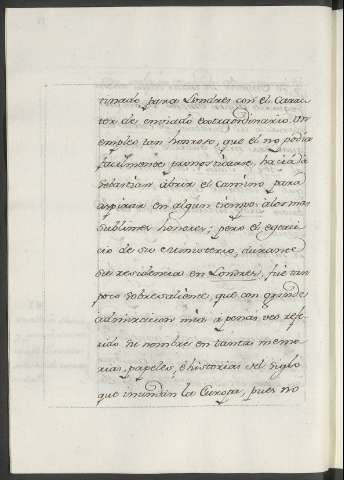 tinado para Londres con el Carac-
ter de enviado extraordinario. Un
empleo tan honroso, que el no podia
facilmente pronosticarse, hacia à
Sebastian abrir el camino para
aspirar en algun tiempo alos mas
sublimes honores; pero el egerci-
cio de su ministerio, durante
su residencia en Londres, fue tan
poco sobresaliente, que con grande
admiracion mia apenas veo refe-
rido su nombre en tantas memo-
rias, papeles, è historias del siglo
que inundan la Europa, pues no